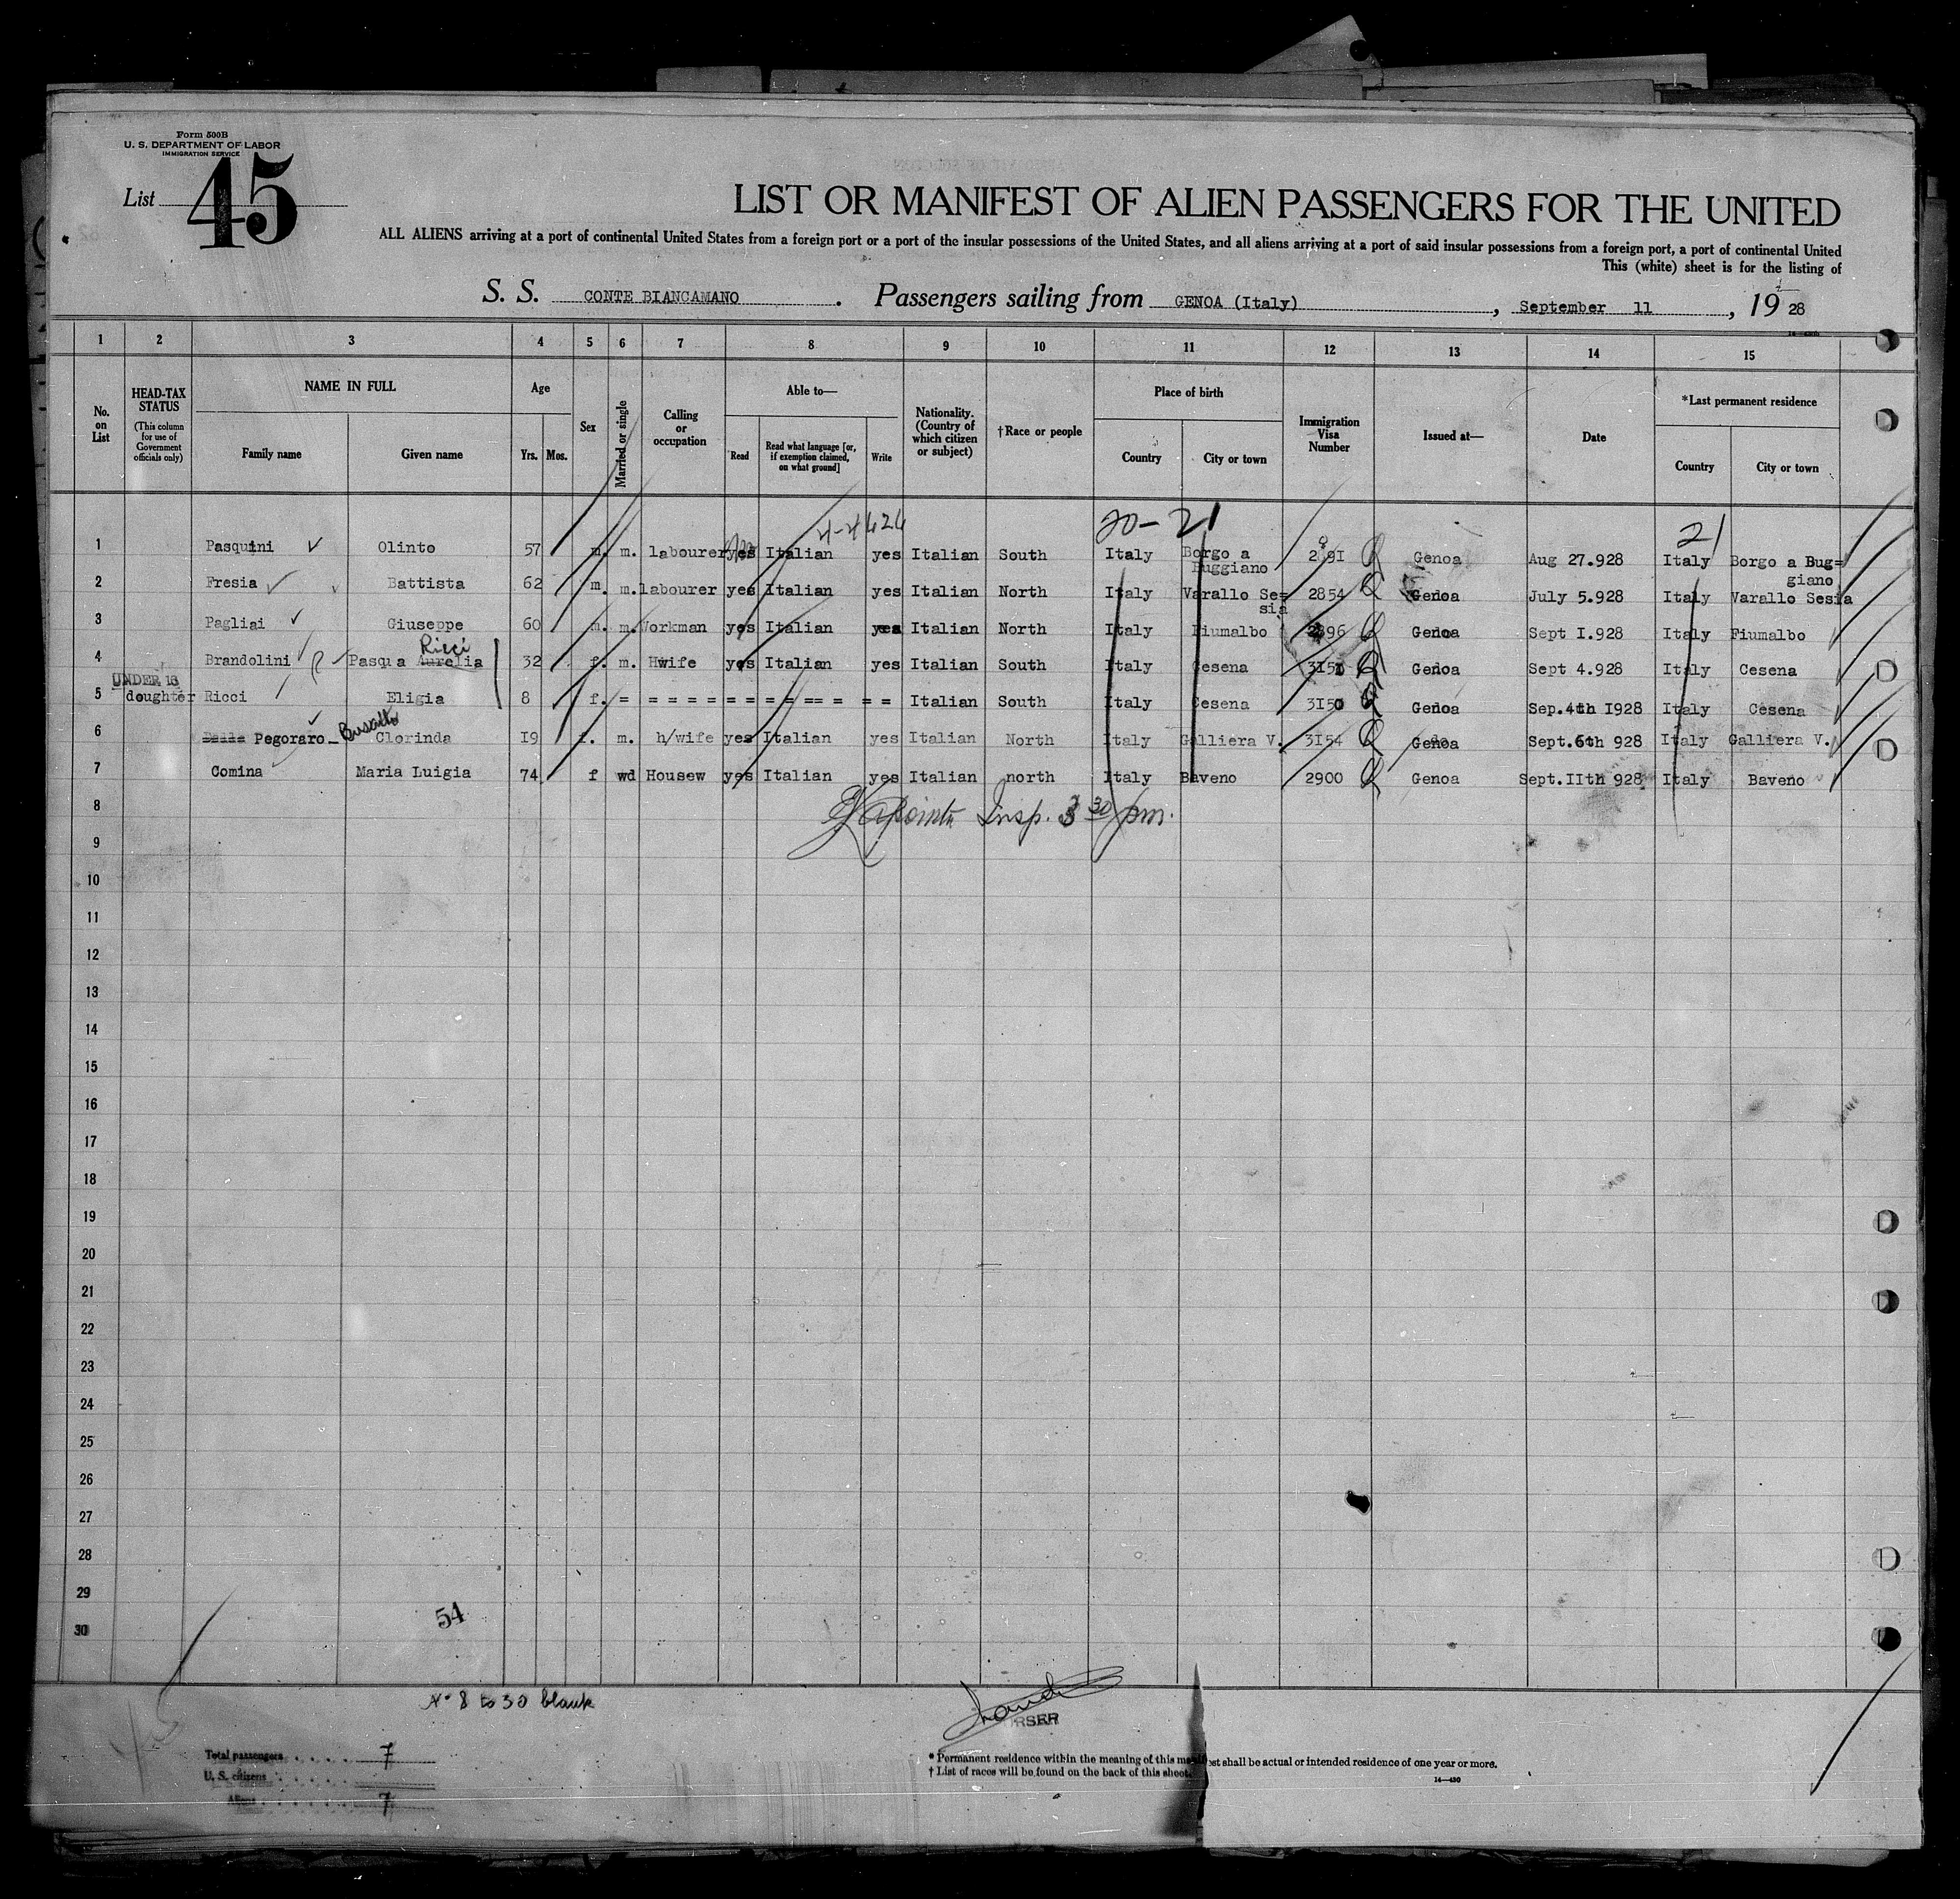 Form 500B
U. S. DEPARTMENT OF LABOR
IMMIGRATION SERVICE
List 45
LIST OR MANIFEST OF ALIEN PASSENGERS FOR THE UNITED
ALL ALIENS arriving at a port of continental United States from a foreign port or a port of the insular possessions of the United States, and all aliens arriving at a port of said insular possessions from a foreign port, a port of continental United
This (white) sheet is for the listing of
S. S. CONTE BIANCAMANO . Passengers sailing from GENOA (Italy) , September 11 , 19 28
1 2 3 4 5 6 7 8 9 10 11 12 13 14 15
No. on List
HEAD-TAX STATUS (This column for use of Government officials only)
NAME IN FULL
Family name Given name
Age
Yrs. Mos.
Sex
Married or single
Calling or occupation
Able to—
Read
Read what language [or, if exemption claimed, on what ground]
Write
Nationality. (Country of which citizen or subject)
†Race or people
Place of birth
Country City or town
Immigration Visa Number
Issued at—
Date
*Last permanent residence
Country City or town
20-21 21
1 Pasquini Olinto 57 m. m. labourer yes Italian yes Italian South Italy Borgo a Buggiano 2891 Genoa Aug 27.928 Italy Borgo a Bug= giano
2 Fresia Battista 62 m. m. labourer yes Italian yes Italian North Italy Varallo Se= sia 2854 Genoa July 5.928 Italy Varallo Sesia
3 Pagliai Giuseppe 60 m. m. Workman yes Italian yes Italian North Italy Fiumalbo 2896 Genoa Sept I.928 Italy Fiumalbo
Ricci
4 Brandolini Pasqua Aurelia 32 f. m. Hwife yes Italian yes Italian South Italy Cesena 3151 Genoa Sept 4.928 Italy Cesena
UNDER 16
5 doughter Ricci Eligia 8 f. = = = = = = = = = = = = = = = Italian South Italy Cesena 3150 Genoa Sep.4th 1928 Italy Cesena
6 Dalla Pegoraro - Clorinda 19 f. m. h/wife yes Italian yes Italian North Italy Galliera V. 3154 Genoa Sept.6th 928 Italy Galliera V.
7 Comina Maria Luigia 74 f wd Housew yes Italian yes Italian north Italy Baveno 2900 Genoa Sept.IIth 928 Italy Baveno
8 Insp. 3 30 pm.
9
10
11
12
13
14
15
16
17
18
19
20
21
22
23
24
25
26
27
28
29
54
30
No 8 to 30 blank
Total passengers . . . . . 7
U. S. citizens . . . . .
Aliens . . . . . 7
* Permanent residence within the meaning of this manifest shall be actual or intended residence of one year or more.
† List of races will be found on the back of this sheet.
14—430